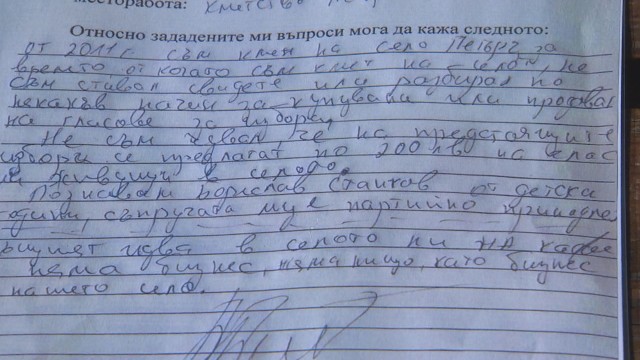 месторабота: Кметство
Относно зададените ми въпроси мога да кажа следното:
от 2011 г. съм кмет на село Петърч, за
времето, от когато съм кмет на село, не
съм ставал свидетел или разбирал по
някакъв начин за купували или продавали
на гласове за избори.
Не съм чувал че на предстоящите
избори се предлагат по 200 лв на глас
живущи в селото.
Познавам Борислав Станков от детски
години, съпругата му е партийно
идва в селото ни на
няма бизнес, няма нищо, като бизнес
нашето село.